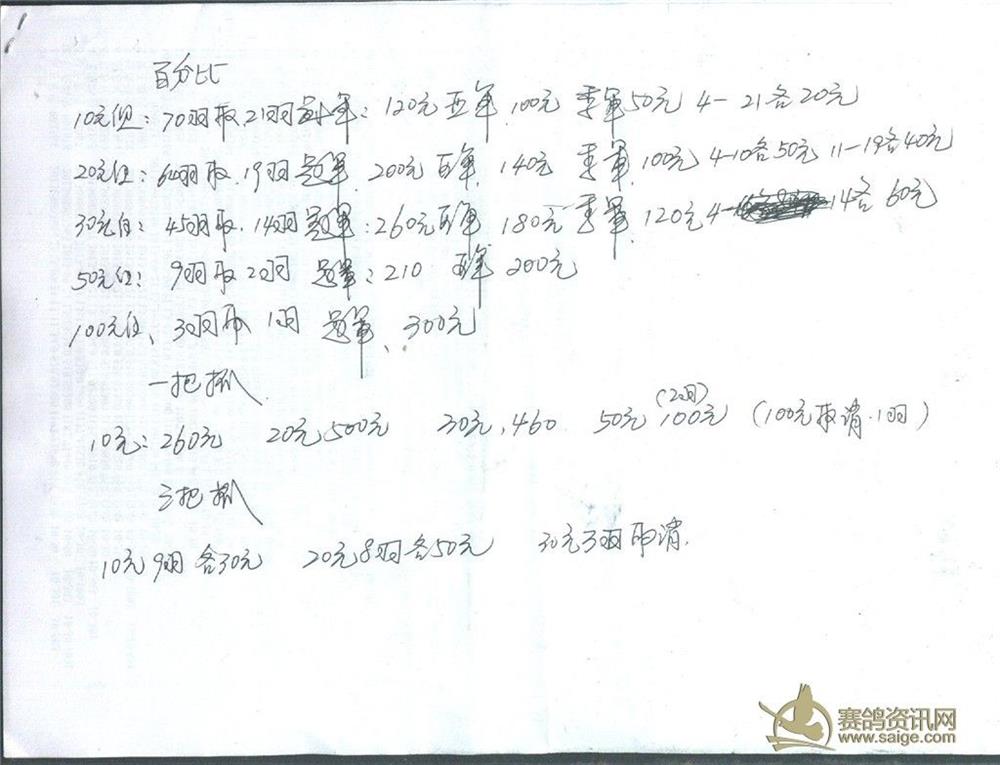 百分比
10元组: 70羽取21羽 冠军: 120元 亚军 100元 季军50元 4-21各20元
20元组: 60羽取.19羽 冠军. 200元 亚军. 140元 季军.100元 4-10各50元 11-19各40元
30元组: 45羽取.14羽 冠军:260元 亚军 180元 季军.120元 4- 14各 60元
50元组: 9羽取2羽 冠军:210 亚军 200元
100元组、3羽取 1羽 冠军、300元
一把抓
10元: 260元 20元,500元 30元,460 50元 100元 (2羽) (100元取消.1羽)
三把抓
10元9羽 各30元 20元8羽各50元 30元3羽取消.
赛鸽资讯网
www.saige.com